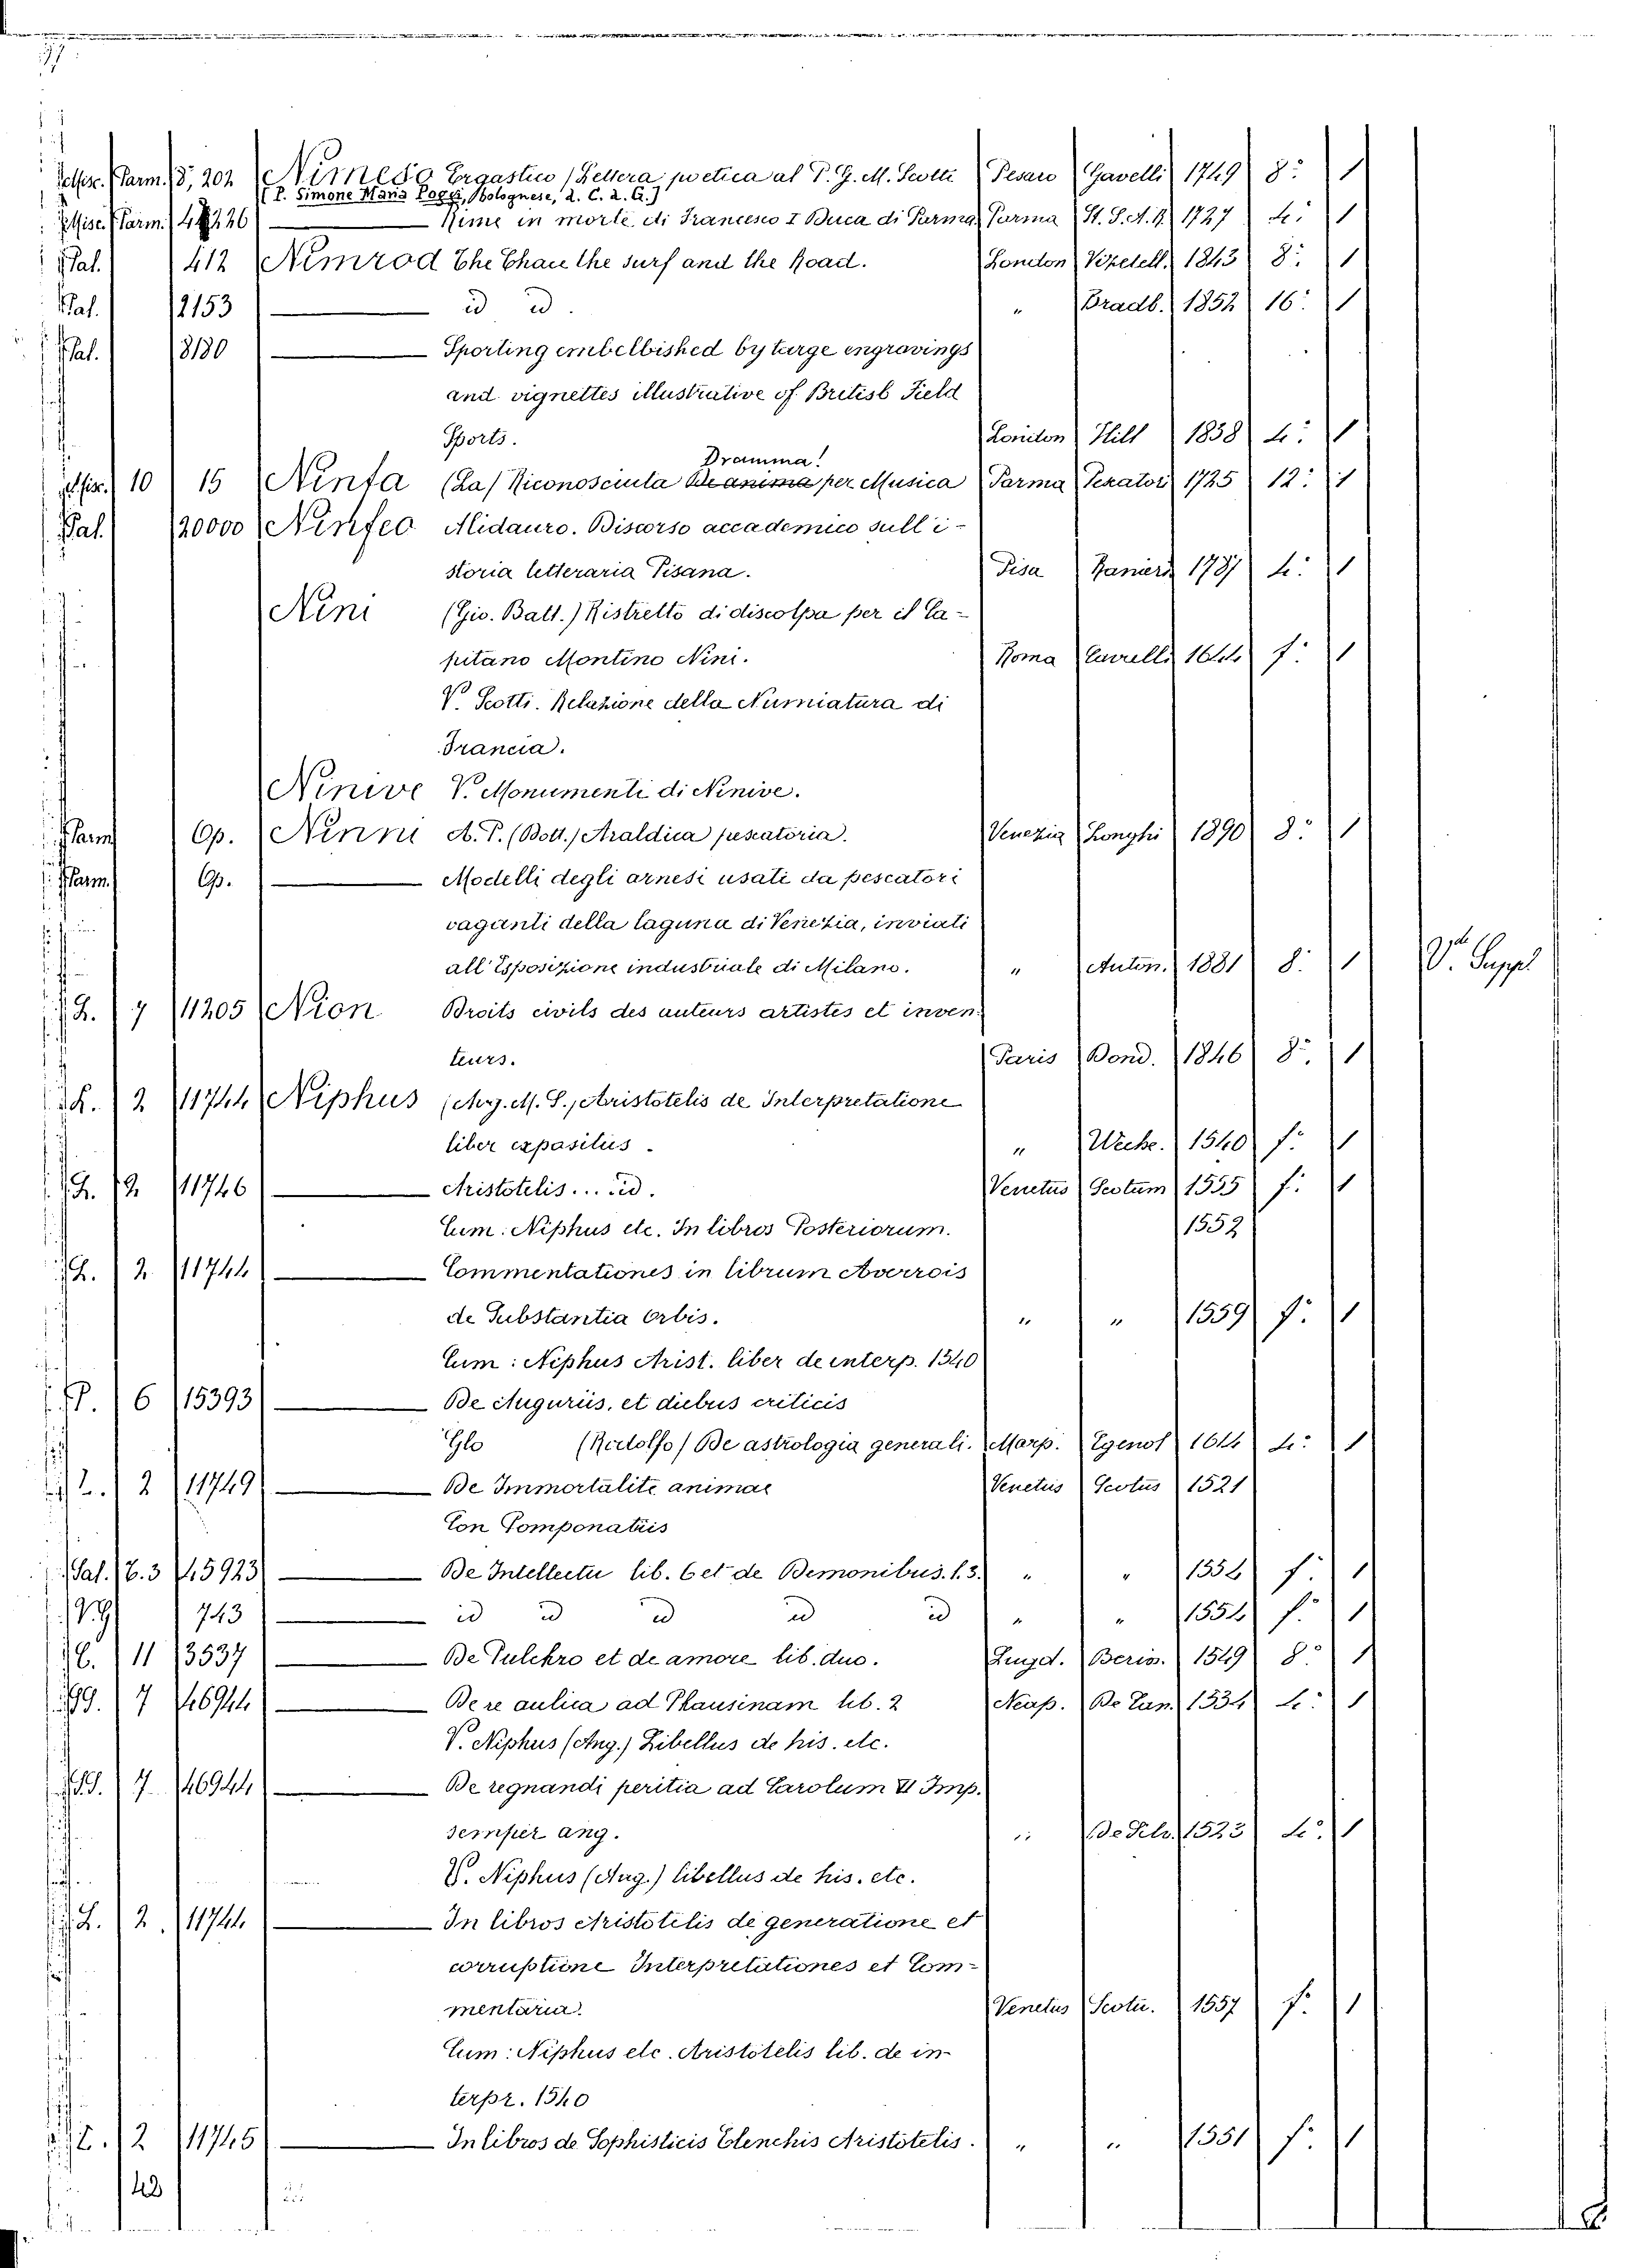 Misc. Parm. 8, 202 Nimeso Ergastico (Lettera poetica al P. G. M. Scotti Pesaro Gavelli 1749 8: 1
(P. Simone Maria Poggi, Bolognese, d. C. d. G.)
Misc. Parm. 4 226 Rime in morte di Francesco I Duca di Parma Parma St. S.A.R. 1727 4: 1
Pal. 412 Nimrod The Chace the surf and the Road. London Vizetell. 1843 8: 1
Pal. 12153 id id. " Bradb. 1852 16: 1
Pal. 13180 Sporting embelbished by large engravings
and vignettes illustrative of British Field
Sports. London Hill 1838 4: 1
Dramma!
Misc. 10 15 Ninfa (La) Riconosciuta Deanima per Musica Parma Rosator 1725 12: 1
Pal. 20000 Ninfeo Alidauro. Discorso accademico sull'i-
storia letteraria Pisana. Pisa Ranieri 1787 4: 1
Nini (Gio. Batt.) Ristretto di discolpa per il Ca-
pitano Montino Nini. Roma Cavelli 1644 f: 1
V. Scotti. Relazione della Numiatura di
Francia.
Ninive V. Monumenti di Ninive.
Parm. Op. Ninni A. P. (Dott.) Araldica pescatoria. Venezia Longhi 1890 8: 1
Parm. Op. Modelli degli arnesi usati da pescatori
vaganti della laguna di Venezia, inviati
all'Esposizione industriale di Milano. " Anton. 1881 8: 1 V. Suppl
L. 7 11205 Nion Droits civils des auteurs artistes et inven-
teurs. Paris Dond. 1846 8: 1
L. 2 11744 Niphus (Aug. M. S.) Aristotelis de Interpretatione
liber expasitus. " Weche. 1540 f: 1
L. 2 11746 Aristotelis.... id. Venetus Scotum 1555 f: 1
Cum: Niphus etc. In libros Posteriorum. 1552
L. 2 11744 Commentationes in librum Averrois
de Substantia Orbis. " " 1559 f: 1
Cum: Niphus Arist. liber de interp. 1540
P. 6 15393 De Auguriis, et diebus criticis
Glo (Rodolfo) De astrologia generali. Marp. Egenof 1614 4: 1
L. 2 11749 De Immortalite animae Venetus Scotus 1521
Con Pomponatiis
Pal. 6.3 15923 De Intellectu lib. 6 et de Demonibus. l.3. " " 1554 f: 1
743 id id id id id " " 1554 f: 1
6. 11 13537 De Pulchro et de amore lib. duo. Lugd. Berin. 1549 8: 1
7 46944 De re aulica ad Phausinam lib. 2 Neap. De Can. 1534 4: 1
V. Niphus (Aug.) Libellus de his. etc.
7 46944 De regnandi peritia ad Carolum VI Imp.
semper ang. " De Silv. 1523 4: 1
V. Niphus (Aug.) libellus de his. etc.
L. 2 11744 In libros Aristotelis de generatione et
corruptione Interpretationes et Com-
mentaria. Venetus Scotu. 1557 f: 1
Cum: Niphus etc. Aristotelis lib. de in-
terpr. 1540
L. 2 11745 In libros de Sophisticis Elenchis Aristotelis. " " 1551 f: 1
43